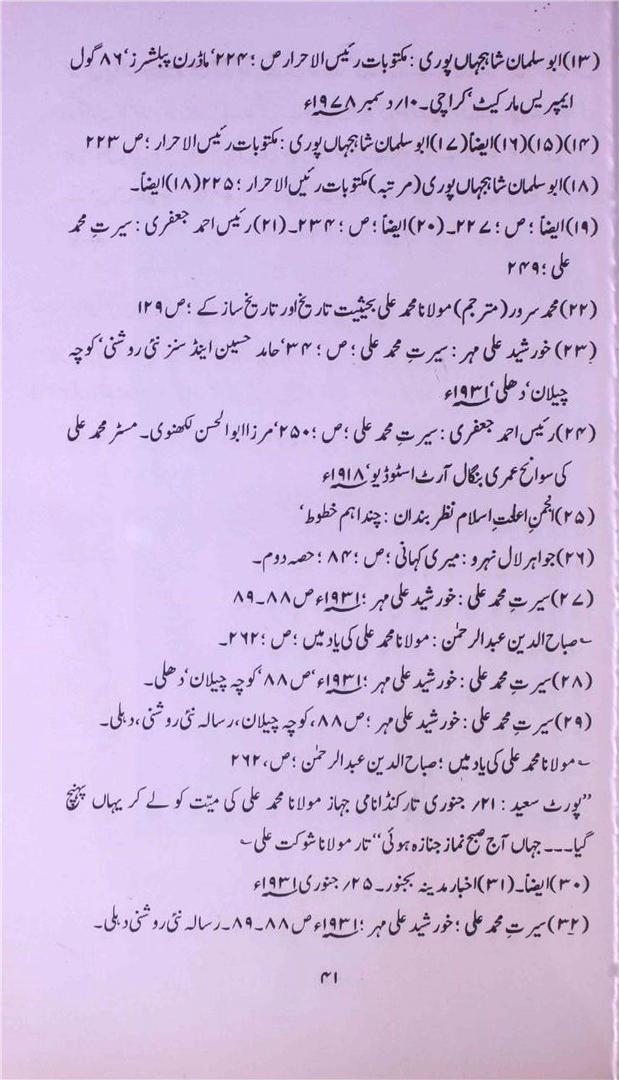 (۱۳) ابو سلمان شاہجہاں پوری : مکتوبات رئیس الاحرار ص ؛ ۲۲۴ ‘ ماڈرن پبلشرز ‘ ۸۶ گول
ایمپریس مارکیٹ ‘ کراچی۔ ۱۰؍ دسمبر ۱۹۷۸ء
(۱۴)(۱۵)(۱۶) ایضاً (۱۷) ابو سلمان شاہجہاں پوری : مکتوبات رئیس الاحرار ؛ ص ۲۲۳
(۱۸) ابو سلمان شاہجہاں پوری (مرتبہ) مکتوبات رئیس الاحرار ؛ ۲۲۵ (۱۸) ایضاً۔
(۱۹) ایضاً ؛ ص ؛ ۲۲۷۔ (۲۰) ایضاً ؛ ص ؛ ۲۳۴۔ (۲۱) رئیس احمد جعفری : سیرتِ محمد
علی ؛ ۲۴۹
(۲۲) محمد سرور (مترجم) مولانا محمد علی بحیثیت تاریخ اور تاریخ ساز کے ؛ ص ۱۲۹
(۲۳) خورشید علی مہر : سیرتِ محمد علی ؛ ص ؛ ۳۴ ‘ حامد حسین اینڈ سنز نئی روشنی ‘ کوچہ
چیلان ‘ دھلی ‘ ۱۹۳۱ء
(۲۴) رئیس احمد جعفری : سیرتِ محمد علی ؛ ص ؛ ۲۵۰ ‘ مرزا ابوالحسن لکھنوی۔ مسٹر محمد علی
کی سوانح عمری بنگال آرٹ اسٹوڈیو ‘ ۱۹۱۸ء
(۲۵) انجمنِ اعانتِ اسلام نظر بندان : چند اہم خطوط ‘
(۲۶) جواہر لال نہرو : میری کہانی ؛ ص ؛ ۸۴ ؛ حصہ دوم۔
(۲۷) سیرتِ محمد علی : خورشید علی مہر ؛ ۱۹۳۱ء ص ۸۸۔ ۸۹
؎ صباح الدین عبدالرحمٰن : مولانا محمد علی کی یاد میں ؛ ص ؛ ۲۶۲۔
(۲۸) سیرتِ محمد علی : خورشید علی مہر ؛ ۱۹۳۱ء ‘ ص ۸۸ ‘ کوچہ چیلان ‘ دھلی۔
(۲۹) سیرتِ محمد علی : خورشید علی مہر ؛ ص ۸۸، کوچہ چیلان، رسالہ نئی روشنی، دہلی۔
؎ مولانا محمد علی کی یاد میں ؛ صباح الدین عبدالرحمٰن ؛ ص، ۲۶۲
”پورٹ سعید : ۲۱؍ جنوری تارکنڈا نامی جہاز مولانا محمد علی کی میّت کو لے کر یہاں پہنچ
گیا۔۔۔ جہاں آج صبح نماز جنازہ ہوئی“ تار مولانا شوکت علی ؎
(۳۰) ایضاً۔ (۳۱) اخبار مدینہ بجنور۔ ۲۵؍ جنوری ۱۹۳۱ء
(۳۲) سیرتِ محمد علی ؛ خورشید علی مہر ؛ ۱۹۳۱ء ص ۸۸۔ ۸۹۔ رسالہ نئی روشنی دہلی۔
۴۱